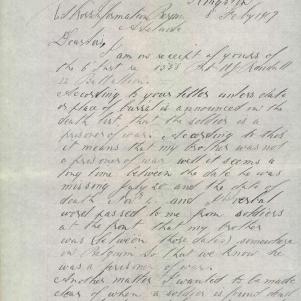 Kingston
8 Feby 1917
Red Cross Information Bureau
Adelaide
Dear Sir,
I am in receipt of yours of
the 6th inst re 1388 Pte
12 Battalion.
According to your letter unless date
or place of burial is announced on the
death list, that the soldier is a
prisoner of war. According to this
it means that my brother was not
a prisoner of war well it seems a
long time between the date he was
missing July 20 and the date of
death Nov 4. and verbal
word passed to me from soldiers
at the front that my brother
was (between those dates) somewhere
in Belgium so that we know he
was a prisoner of war.
Another matter I wanted to be made
clear of when a soldier is found dead